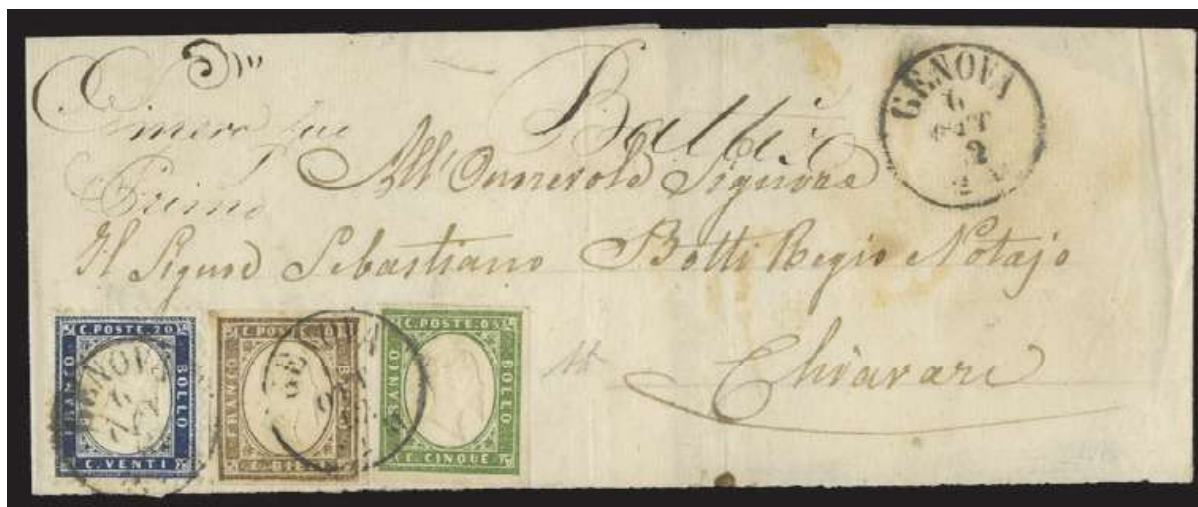 Balbi
GENOVA
6
OTT
2
All'Onnevole Signore
Primo
Il Signor Sebastiano Botti Regio Notajo
Chiavari
C. POSTE. 20
FRANCO
BOLLO
C. VENTI
GENOVA
C. POSTE. 10
FRANCO
BOLLO
GENOVA
C. POSTE. 05
FRANCO
BOLLO
C. CINQUE